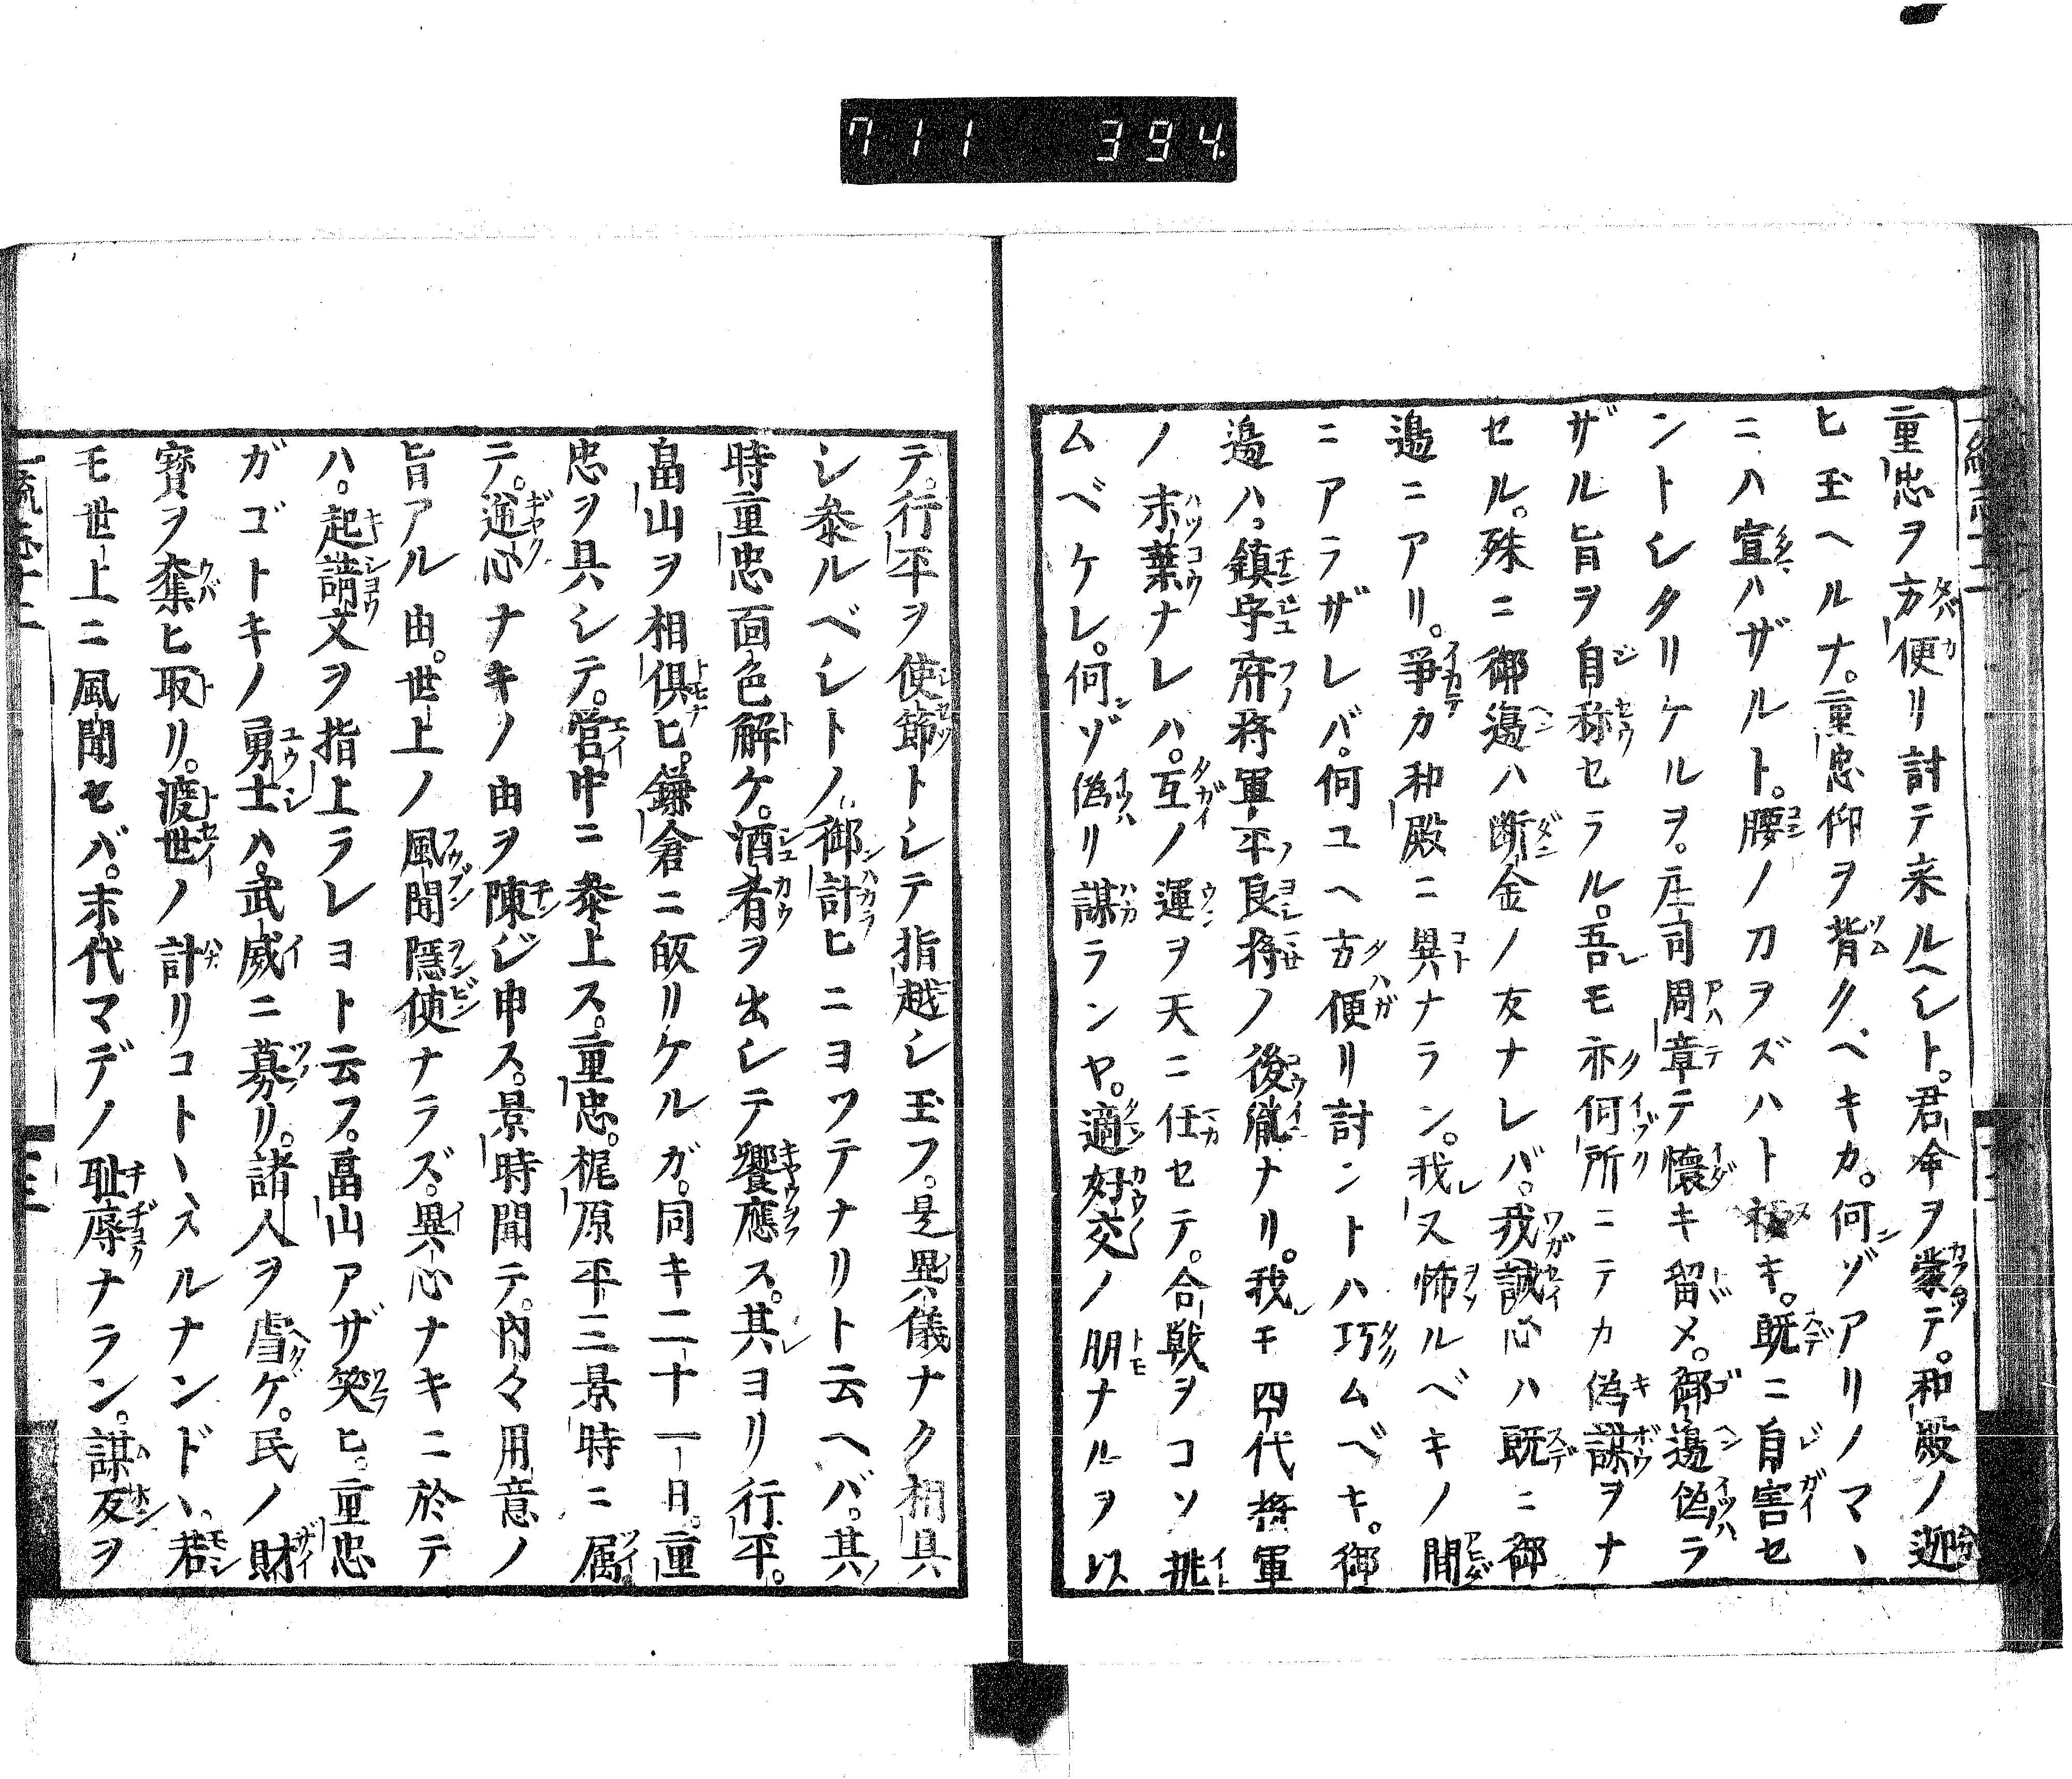 711 394
重忠ヲ方便リ討テ来ルヘシト。君命ヲ蒙テ。和殿ノ迎
ヒ玉ヘルナ。重忠仰ヲ背クベキカ。何ゾアリノマヽ
ニハ宣ハザルト。腰ノ刀ヲズハト抜キ。既ニ自害セ
ントシタリケルヲ。庄司周章テ懐キ留メ。御邊偽ラ
ザル旨ヲ自称セラル。吾モ亦何所ニテカ偽謀ヲナ
セル。殊ニ御邊ハ断金ノ友ナレバ。我誠心ハ既ニ御
邊ニアリ。爭カ和殿ニ異ナラン。我又怖ルベキノ間
ニアラザレバ。何ユヘ方便リ討ントハ巧ムベキ。御
邊ハ。鎮守府将軍平良将ノ後胤ナリ。我モ四代将軍
ノ末葉ナレハ。互ノ運ヲ天ニ任セテ。合戦ヲコソ挑
ムベケレ。何ゾ偽リ謀ランヤ。適好交ノ朋ナルヲ以
テ。行平ヲ使節トシテ指越シ玉フ。是異儀ナク相具
シ参ルベシトノ御計ヒニヨツテナリト云ヘバ。其
時重忠面色解ケ。酒肴ヲ出シテ饗應ス。其ヨリ行平。
畠山ヲ相倶ヒ。鎌倉ニ皈リケルガ。同キ二十一日。重
忠ヲ具シテ。営中ニ参上ス。重忠。梶原平三景時ニ属
テ。逆心ナキノ由ヲ陳ジ申ス。景時聞テ。内々用意ノ
旨アル由。世上ノ風聞隠使ナラズ。異心ナキニ於テ
ハ。起請文ヲ指上ラレヨト云フ。畠山アザ笑ヒ。重忠
ガゴトキノ勇士ハ。武威ニ募リ。諸人ヲ虐ゲ。民ノ財
寳ヲ奪ヒ取リ。渡世ノ計リコトヽスルナンドヽ。若
モ世上ニ風聞セバ。末代マデノ耻辱ナラン。謀反ヲ